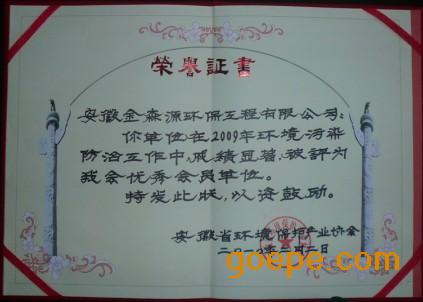 榮譽証書
安徽金森源环保工程有限公司:
你单位在2009年环境污染
防治工作中,成绩显著,被评为
我会优秀会员单位。
特发此状,以资鼓励。
安徽省环境保护产业协会
二〇一〇年二月二日
goepe.com